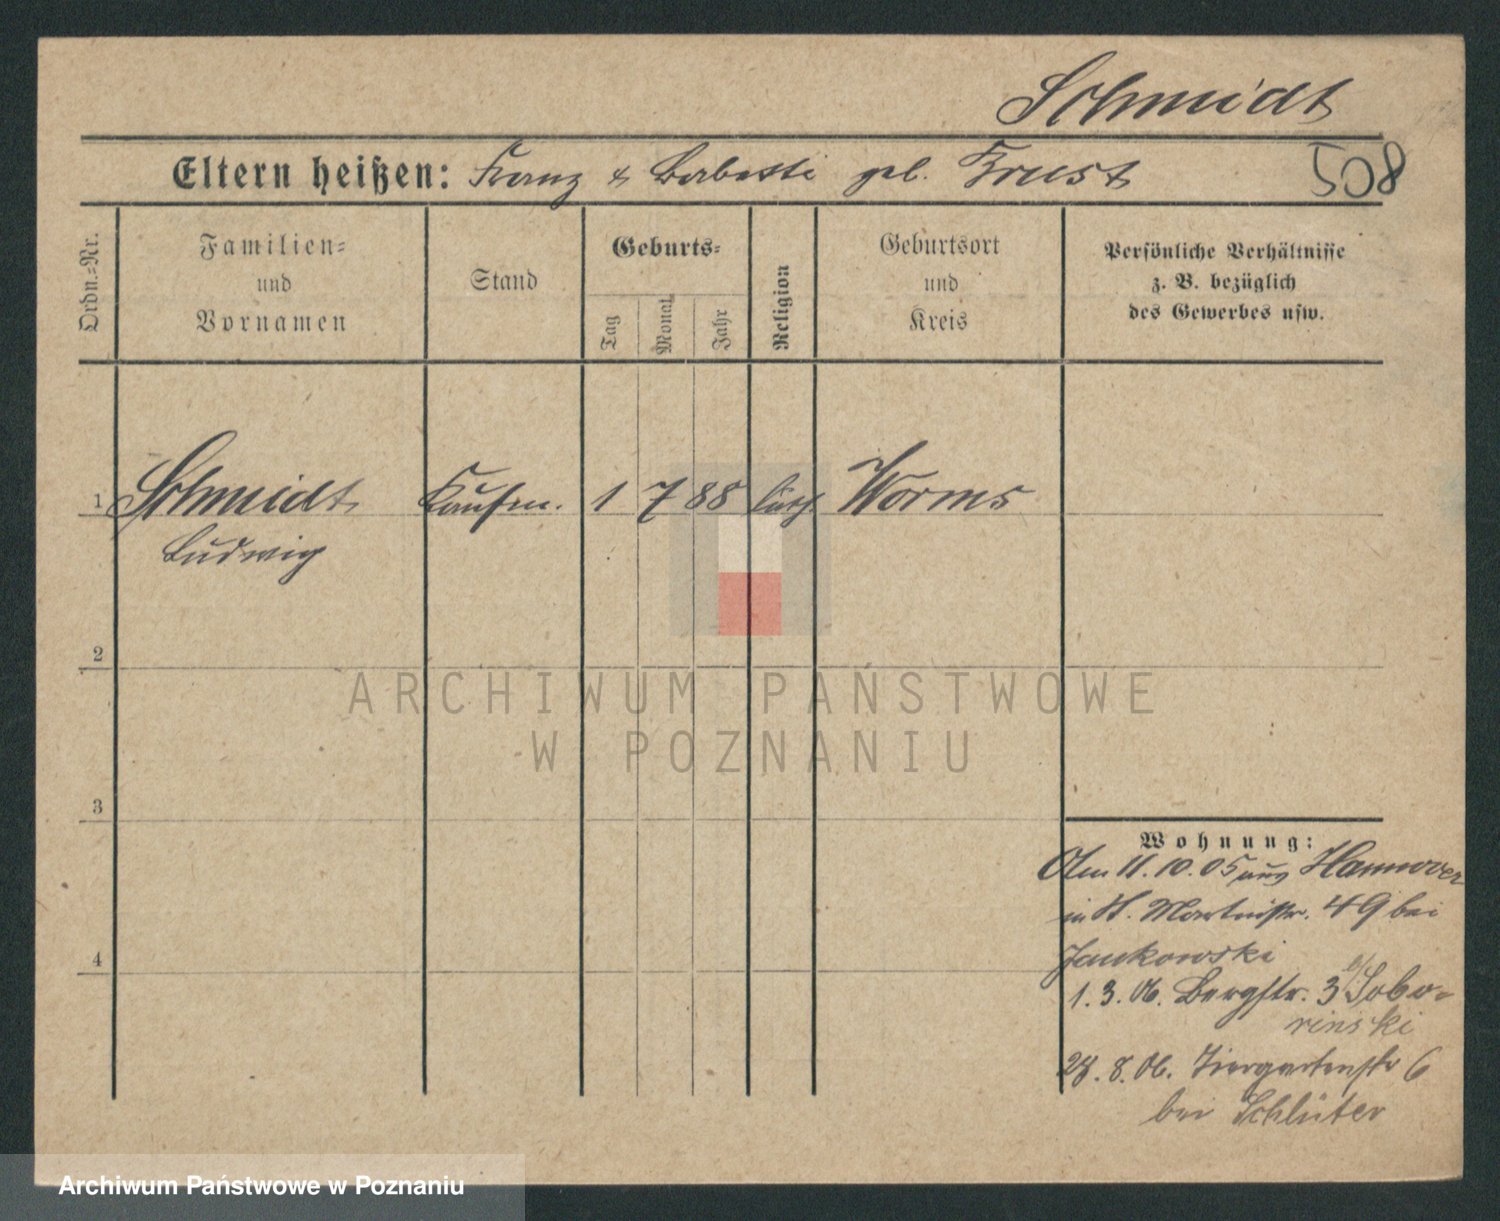 Schmidt
508
Eltern heißen: Franz & Babette geb. Trust
Ordn.=Nr.
Familien=
und
Vornamen
Stand
Geburts=
Tag
Monat
Jahr
Religion
Geburtsort
und
Kreis
Persönliche Verhältnisse
z. B. bezüglich
des Gewerbes usw.
1 Schmidt Kaufm. 1 7 88 luth Worms
Ludwig
2
ARCHIWUM PAŃSTWOWE
W POZNANIU
3
Wohnung:
Am 11.10.05 aus Hannover
in St. Martinstr. 49 bei
Jankowski
4
1. 3. 06. Bergstr. 3 b/ Sobo-
rinski
28. 8. 06. Tiergartenstr 6
bei Schlüter
Archiwum Państwowe w Poznaniu